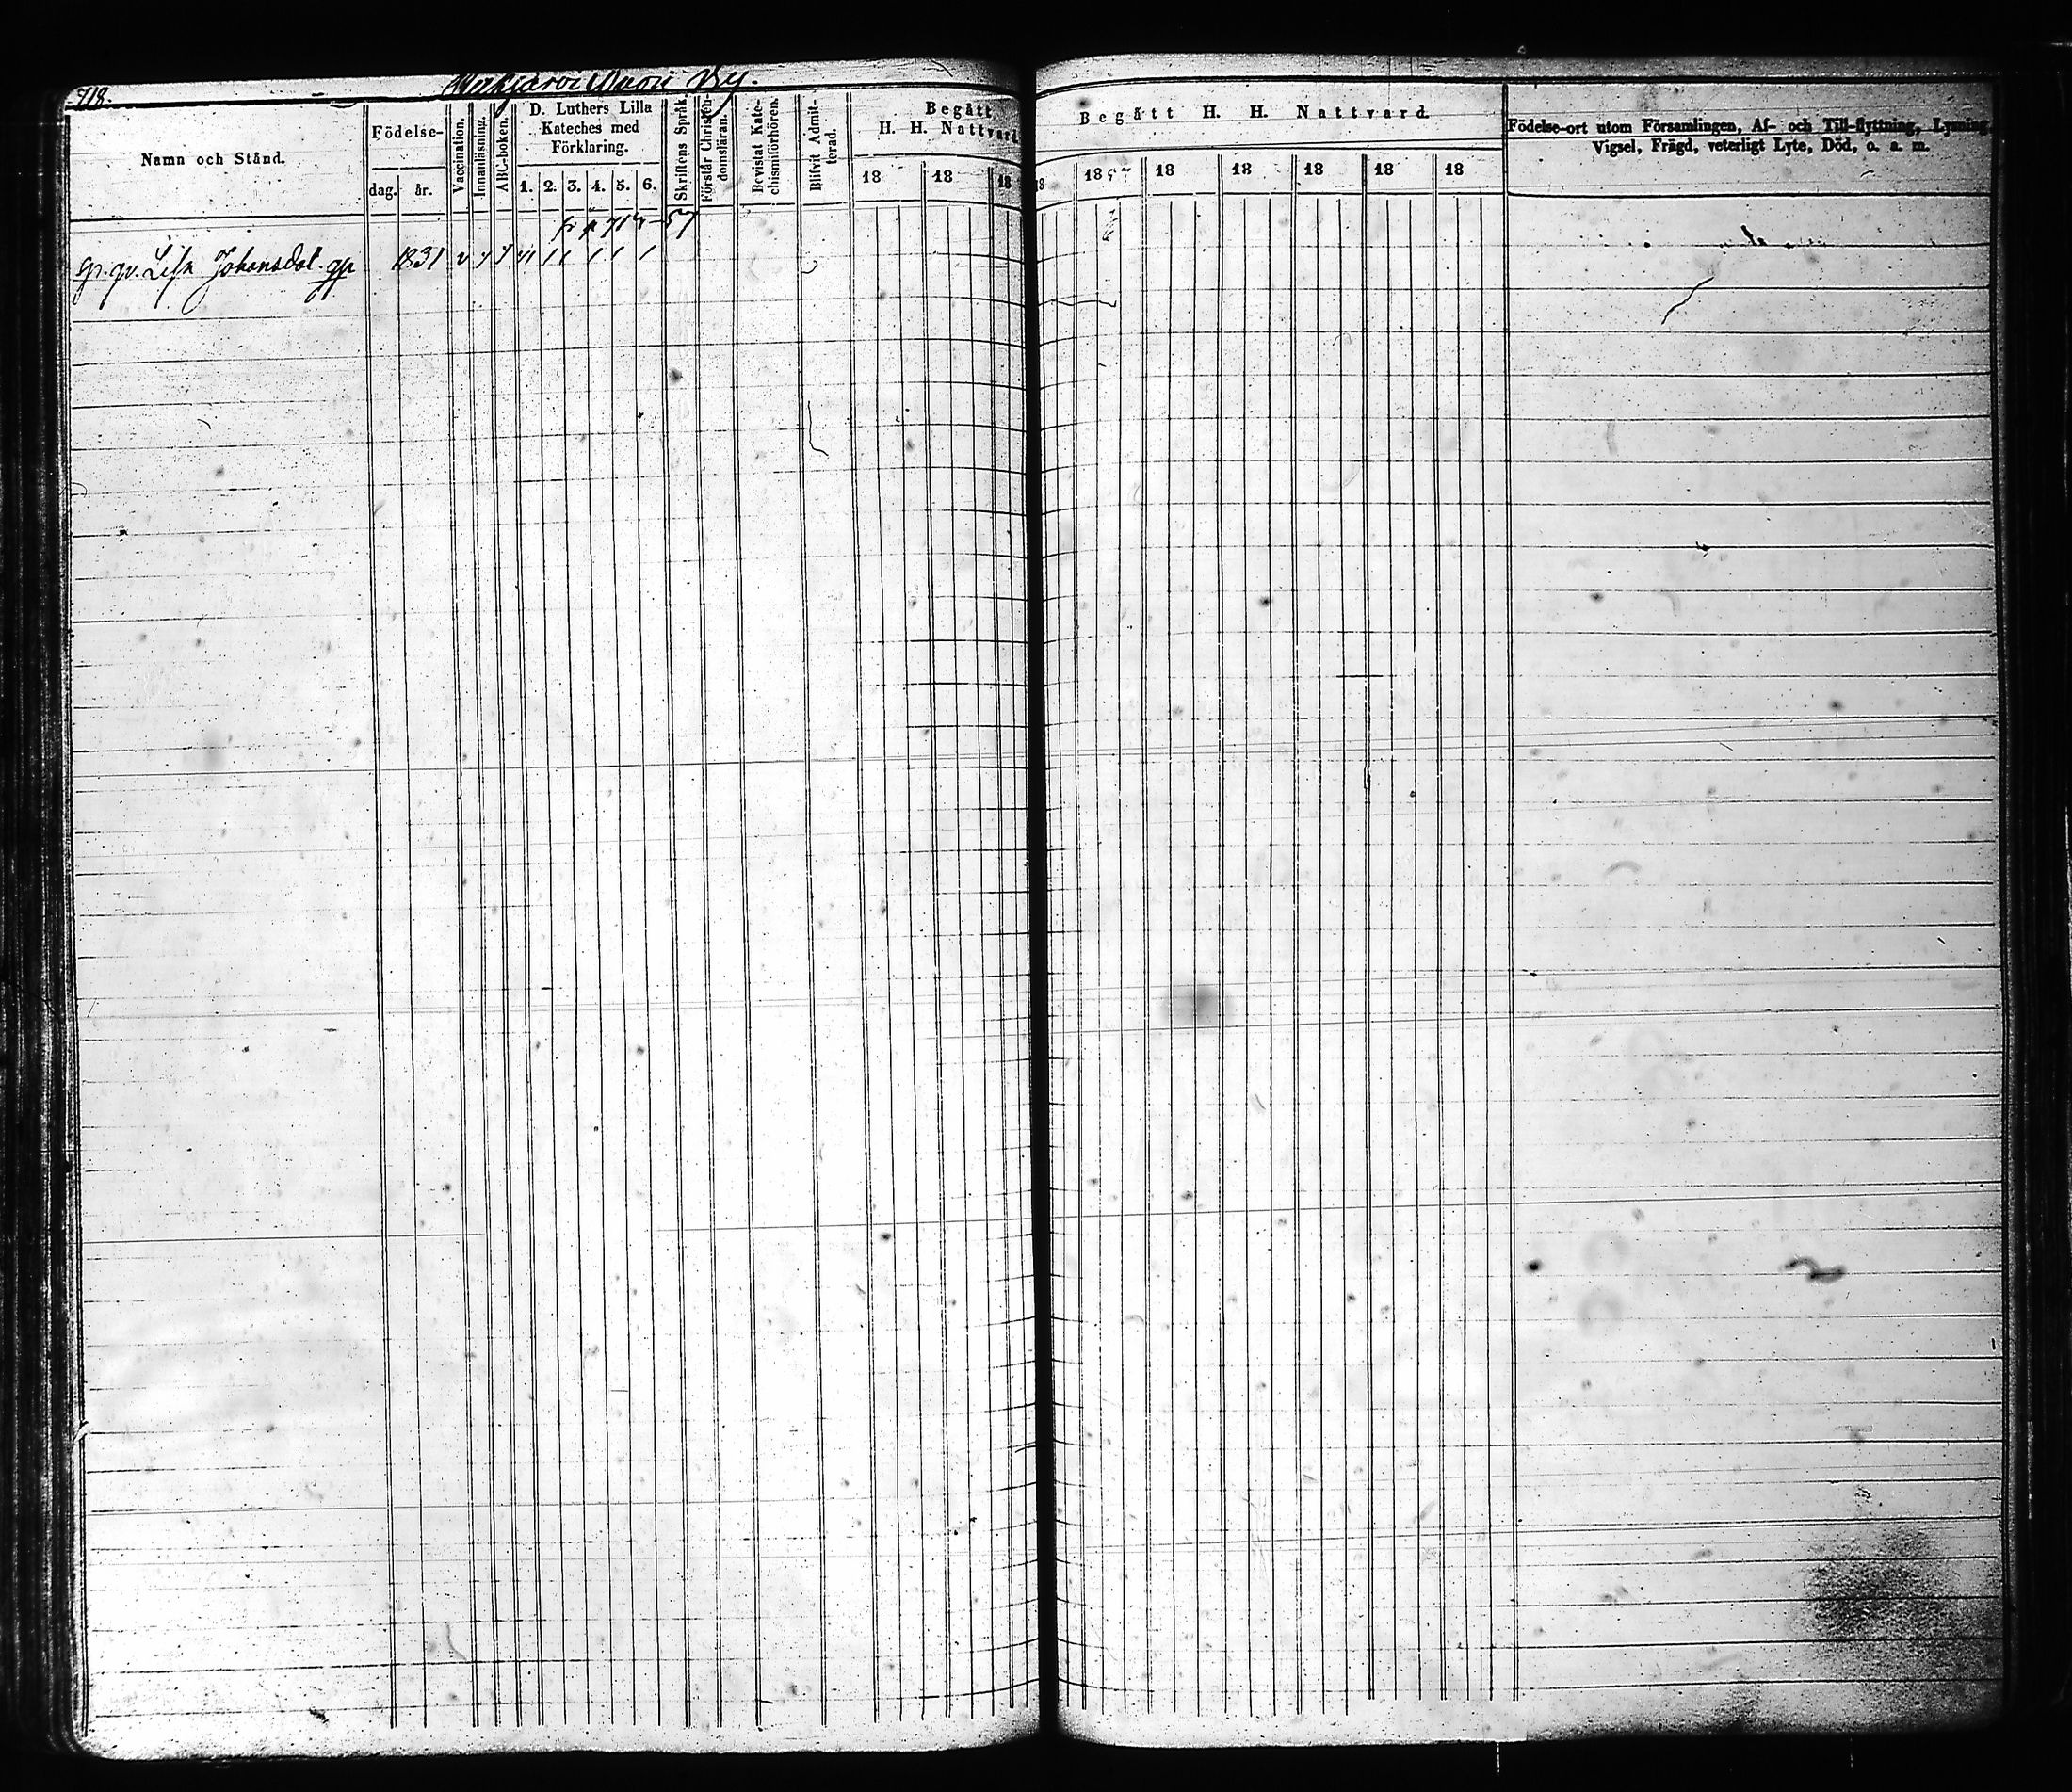 718. By.
Namn och Stånd.
Födelse-
dag. år.
Vaccination.
Innanläsning.
ABC-boken.
D. Luthers Lilla
Kateches med
Förklaring.
1. 2. 3. 4. 5. 6.
Skriftens Språk.
Förstår Christen-
domsläran.
Bevistat Kate-
chismiförhören.
Blifvit Admit-
terad.
Begått
H. H. Nattvard.
18 18 18
Begått H. H. Nattvard.
18 1857 18 18 18 18 18
Födelse-ort utom Församlingen, Af- och Till-flyttning, Lysning,
Vigsel, Frägd, veterligt Lyte, Död, o. a. m.
Lisa Johansdot. 1831